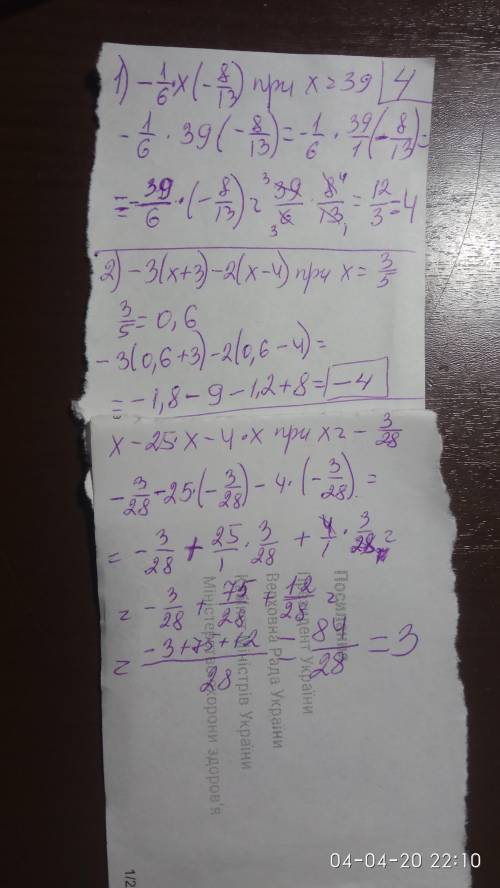 1) -1/6·x(-8/13) при x=39 4
-1/6 · 39(-8/13)=-1/6 · 39/1(-8/13)=
=-39/6·(-8/13)= 39/6 · 8/13=12/3=4
2) -3(x+3)-2(x-4) при x=3/5
3/5=0,6
-3(0,6+3)-2(0,6-4)=
=-1,8-9-1,2+8=-4
x-25·x-4·x при x=-3/28
-3/28-25·(-3/28)-4·(-3/28)=
=-3/28+25/1·3/28+4/1·3/28=
=-3/28+75/28+12/28=
=-3+75+12/28=84/28=3
Посилання
Президент України
Верховна Рада України
Кабінет Міністрів України
Міністерство охорони здоров'я
1/2
04-04-20 22:10